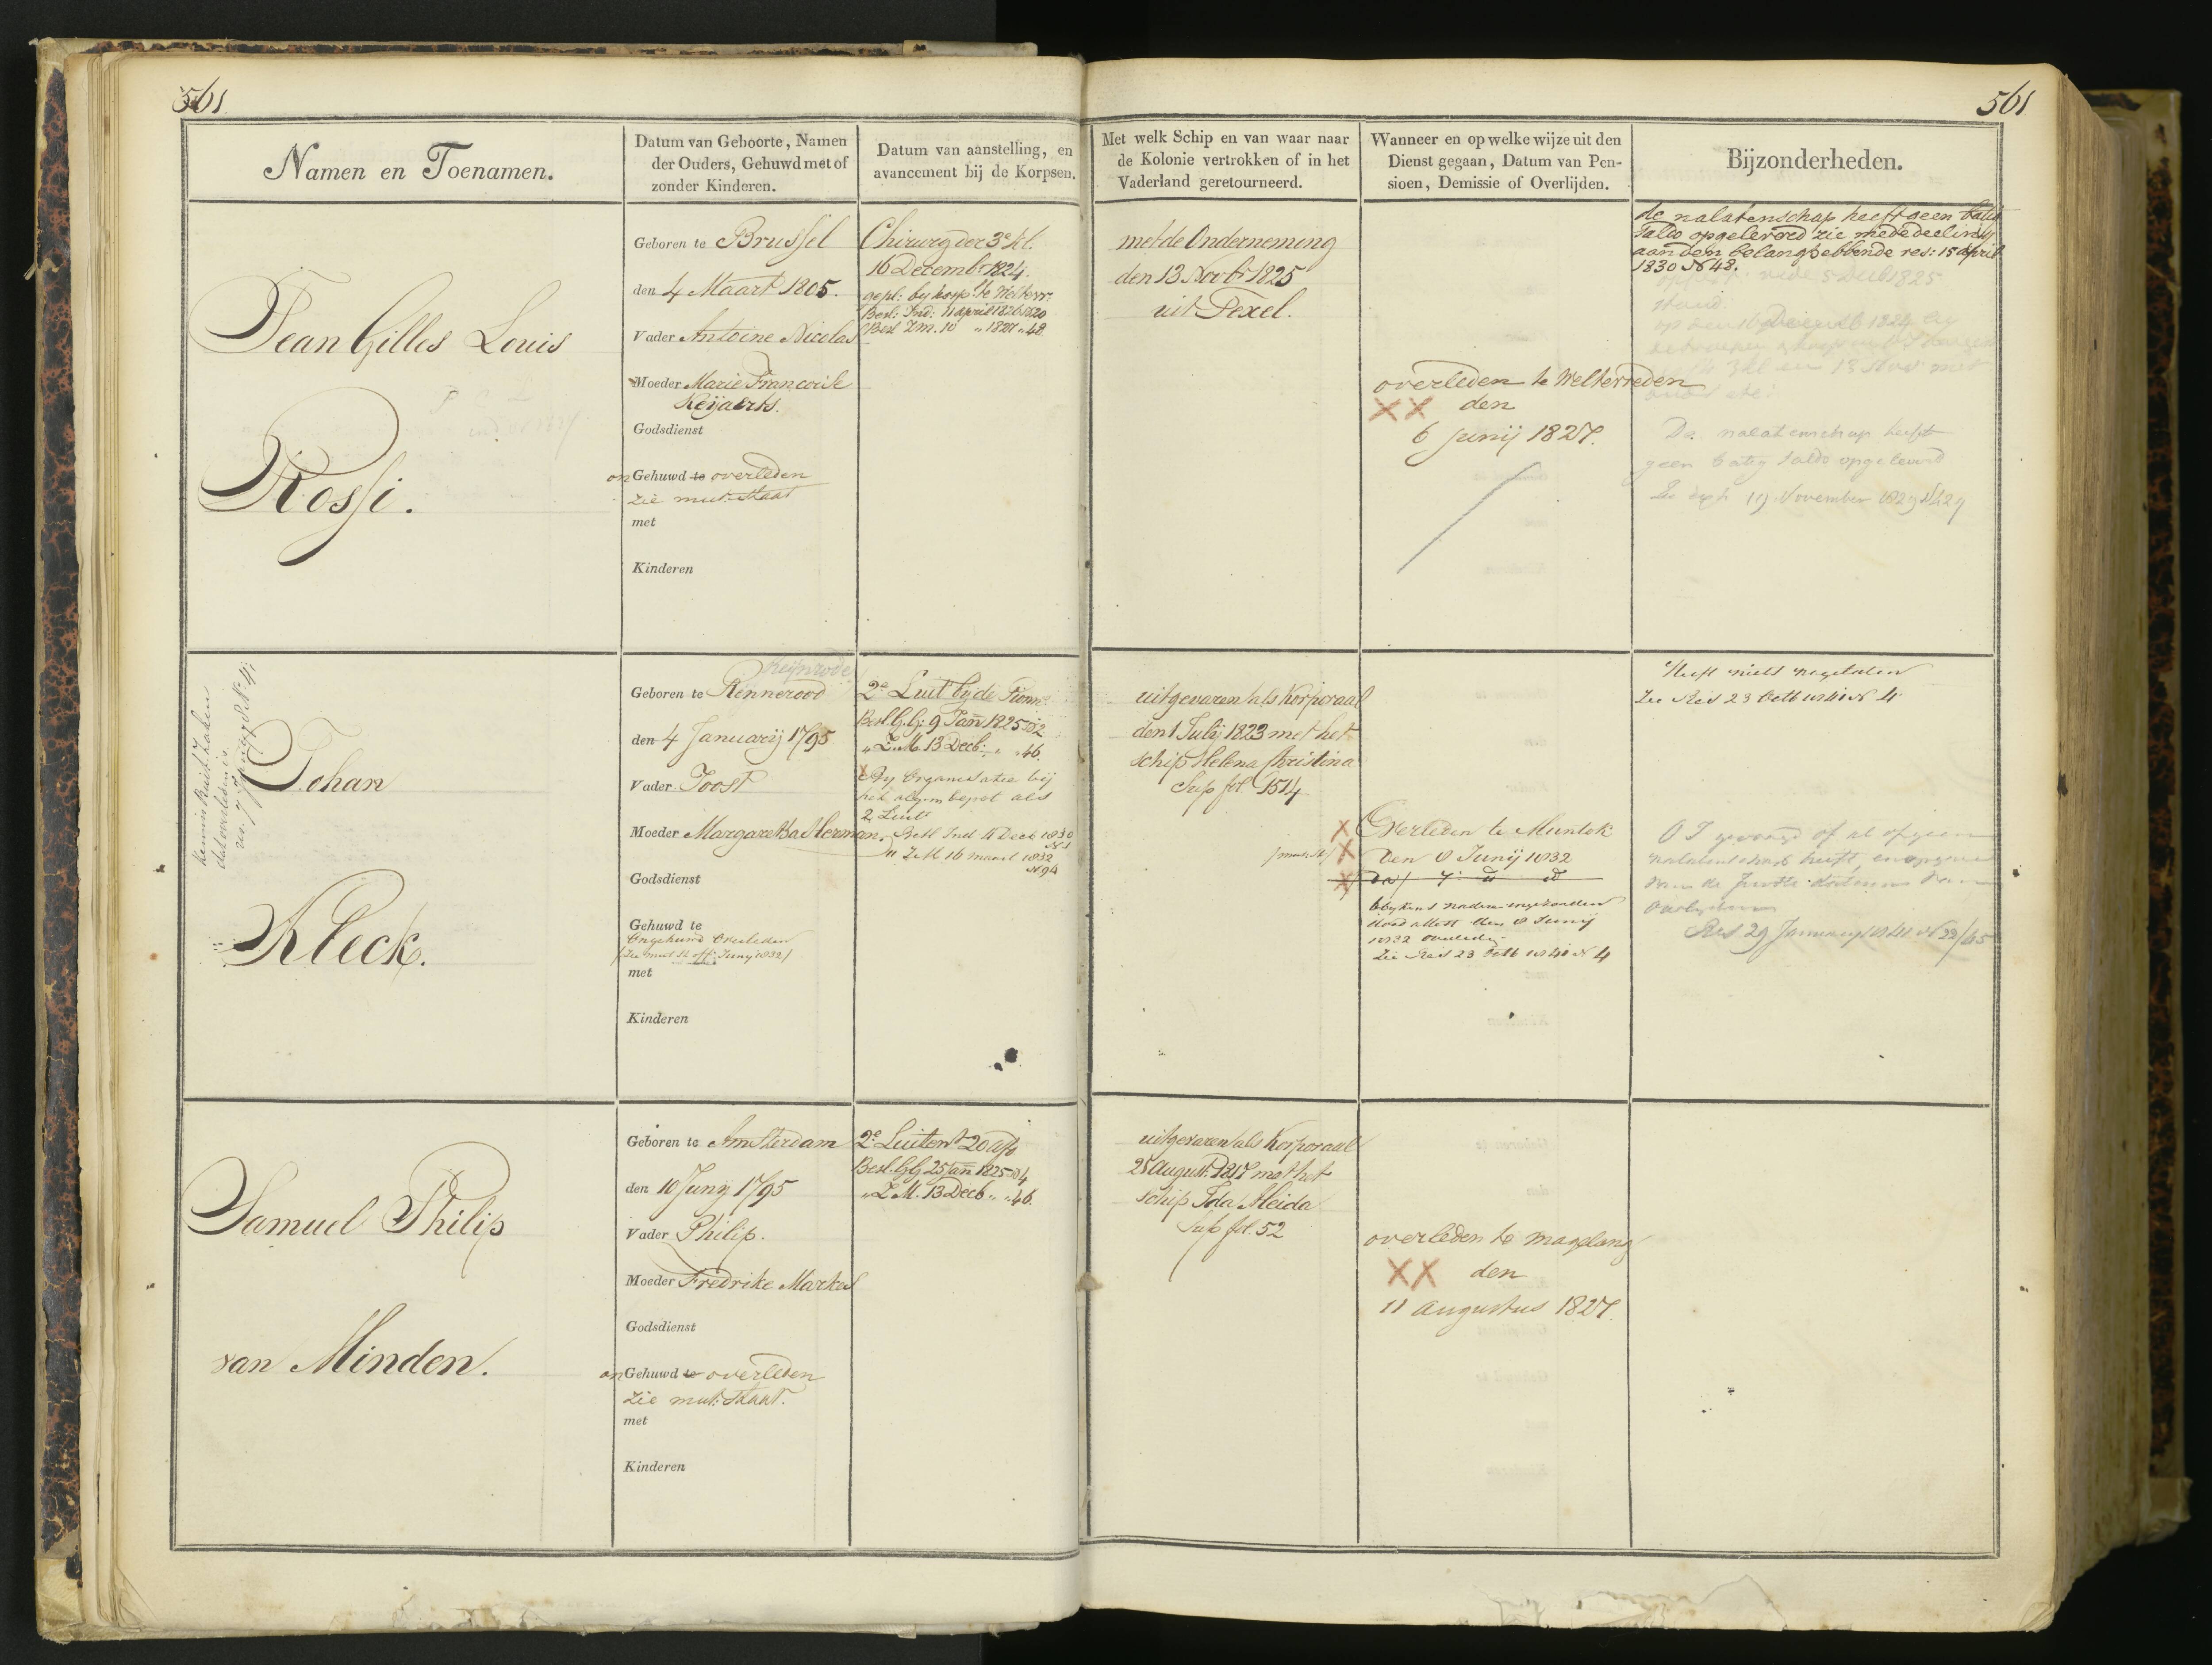 561.
561
Namen en Toenamen.
Datum van Geboorte, Namen
der Ouders, Gehuwd met of
zonder Kinderen.
Datum van aanstelling, en
avancement bij de Korpsen.
Met welk Schip en van waar naar
de Kolonie vertrokken of in het
Vaderland geretourneerd.
Wanneer en op welke wijze uit den
Dienst gegaan, Datum van Pen-
sioen, Demissie of Overlijden.
Bijzonderheden.
Jean Gilles Louis
Rossi.
Geboren te Brussel
den 4 Maart 1805.
Vader Antoine Nicolas
Moeder Marie Francoise
Keijaerts.
Godsdienst
on Gehuwd te overleden
zie mut: staat
met
Kinderen
Chirurg der 3e kl.
16 Decembr 1824.
gepl: by hosp: te Weltevr:
Besl: Ind: 11 april 1826 No 20
Besl Z.M. 10 " 1827 " 48
met de Onderneming
den 13 Novbr 1825
uit Texel.
overleden te Weltevreden
XX den
6 Junij 1827.
de nalatenschap heeft geen batig
saldo opgeleverd zie mededeeling
aan den belanghebbende res: 15 April
1830 No 48.
5 Decb 1825
De nalatenschap heeft
geen batig saldo opgeleverd
19 November 1829 No 29
Johan
Kleck.
Geboren te Rennerood
den 4 Januarij 1795
Vader Joost
Moeder Margaretha Herman.
Godsdienst
Gehuwd te
Ongehuwd Overleden
/Zie mut St off: Junij 1832/
met
Kinderen
2e Luit bij de Pionn:
Besl. G.G. 9 Jan 1825 No 2
" Z.M. 13 Decb: " " 46.
X By Organisatie bij
het algem depot als
2 Luit
Besl Ind 11 Decb 1830
No 1
" Z M 16 maart 1832
No 94
uitgevaren als Korporaal
den 1 Julij 1823 met het
schip Helena Christina
Sup fol. 1514
X Overleden te Muntok
X den 8 Junij 1832
blykens nader ingezonden
dood attest den 8 Junij
1832 overleden
Zie Res 23 Octb 1841 No 4
Heeft niets nagelaten
Zie Res 23 Octb 1841 No 4
Res 29 January 1841 No 22/65
Samuel Philip
van Minden.
Geboren te Amsterdam
den 10 Junij 1795
Vader Philip.
Moeder Fredrike Markus
Godsdienst
on Gehuwd te overleden
zie mut: staat.
met
Kinderen
2e Luitent 20 afd
Besl. GG 25 Jan 1825 No 4
" Z.M. 13 Decb " " 46.
uitgevaren als Korporaal
28 August: 1817 met het
schip Ida Aleida
Sup fol. 52
overleden te magelang
XX den
11 augustus 1827.